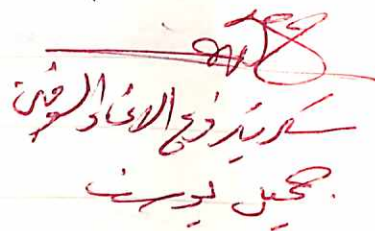 سكرتير فرع الاتحاد الوطني
جميل يوسف